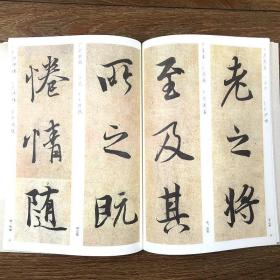 老之将
至及其
所之既
惓情随